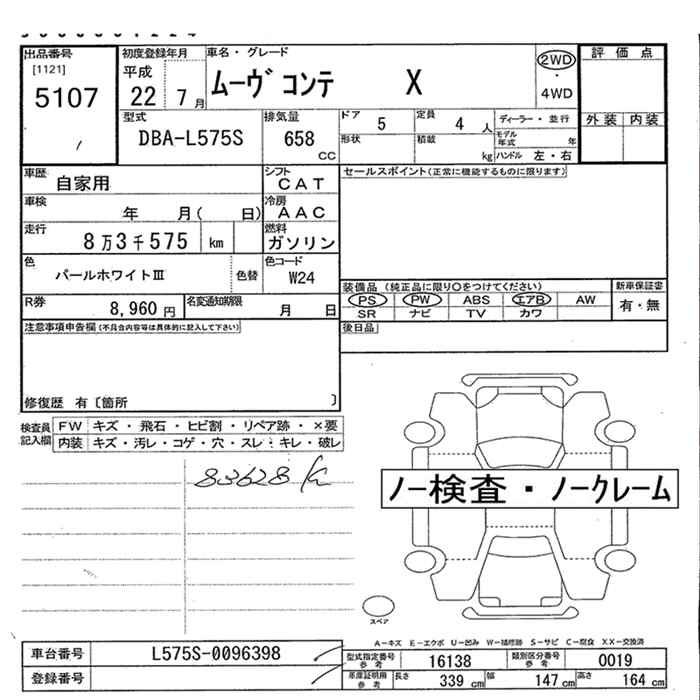 出品番号
[1121]
5107
初度登録年月
平成
22 7月
車名・グレード
ムーヴ コンテ X
2WD
・
4WD
評価点
外装 内装
型式
DBA-L575S
排気量
658
cc
ドア 5
定員 4 人
形状
積載 kg
ディーラー・並行
モデル年式 年
ハンドル 左・右
車歴
自家用
シフト
CAT
車検
年 月( 日)
冷房
AAC
走行
8万3千575 km
燃料
ガソリン
色
パールホワイトⅢ
色替
色コード
W24
R券
8,960 円
名変通知期限
月 日
セールスポイント(正常に機能するものに限ります)
装備品(純正品に限り〇をつけてください)
PS PW ABS エアB AW
SR ナビ TV カワ
新車保証書
有・無
後日品
注意事項申告欄(不具合内容等は具体的に記入して下さい)
修復歴 有〔箇所 〕
検査員記入欄
FW キズ・飛石・ヒビ割・リペア跡・×要
内装 キズ・汚レ・コゲ・穴・スレ・キレ・破レ
83628 K
ノー検査・ノークレーム
スペア
A-キズ E-エクボ U-凹み W-補修跡 S-サビ C-腐食 XX-交換済
車台番号 L575S-0096398
登録番号
型式指定番号参考 16138
類別区分番号参考 0019
車庫証明用参考 長さ 339 cm 幅 147 cm 高さ 164 cm